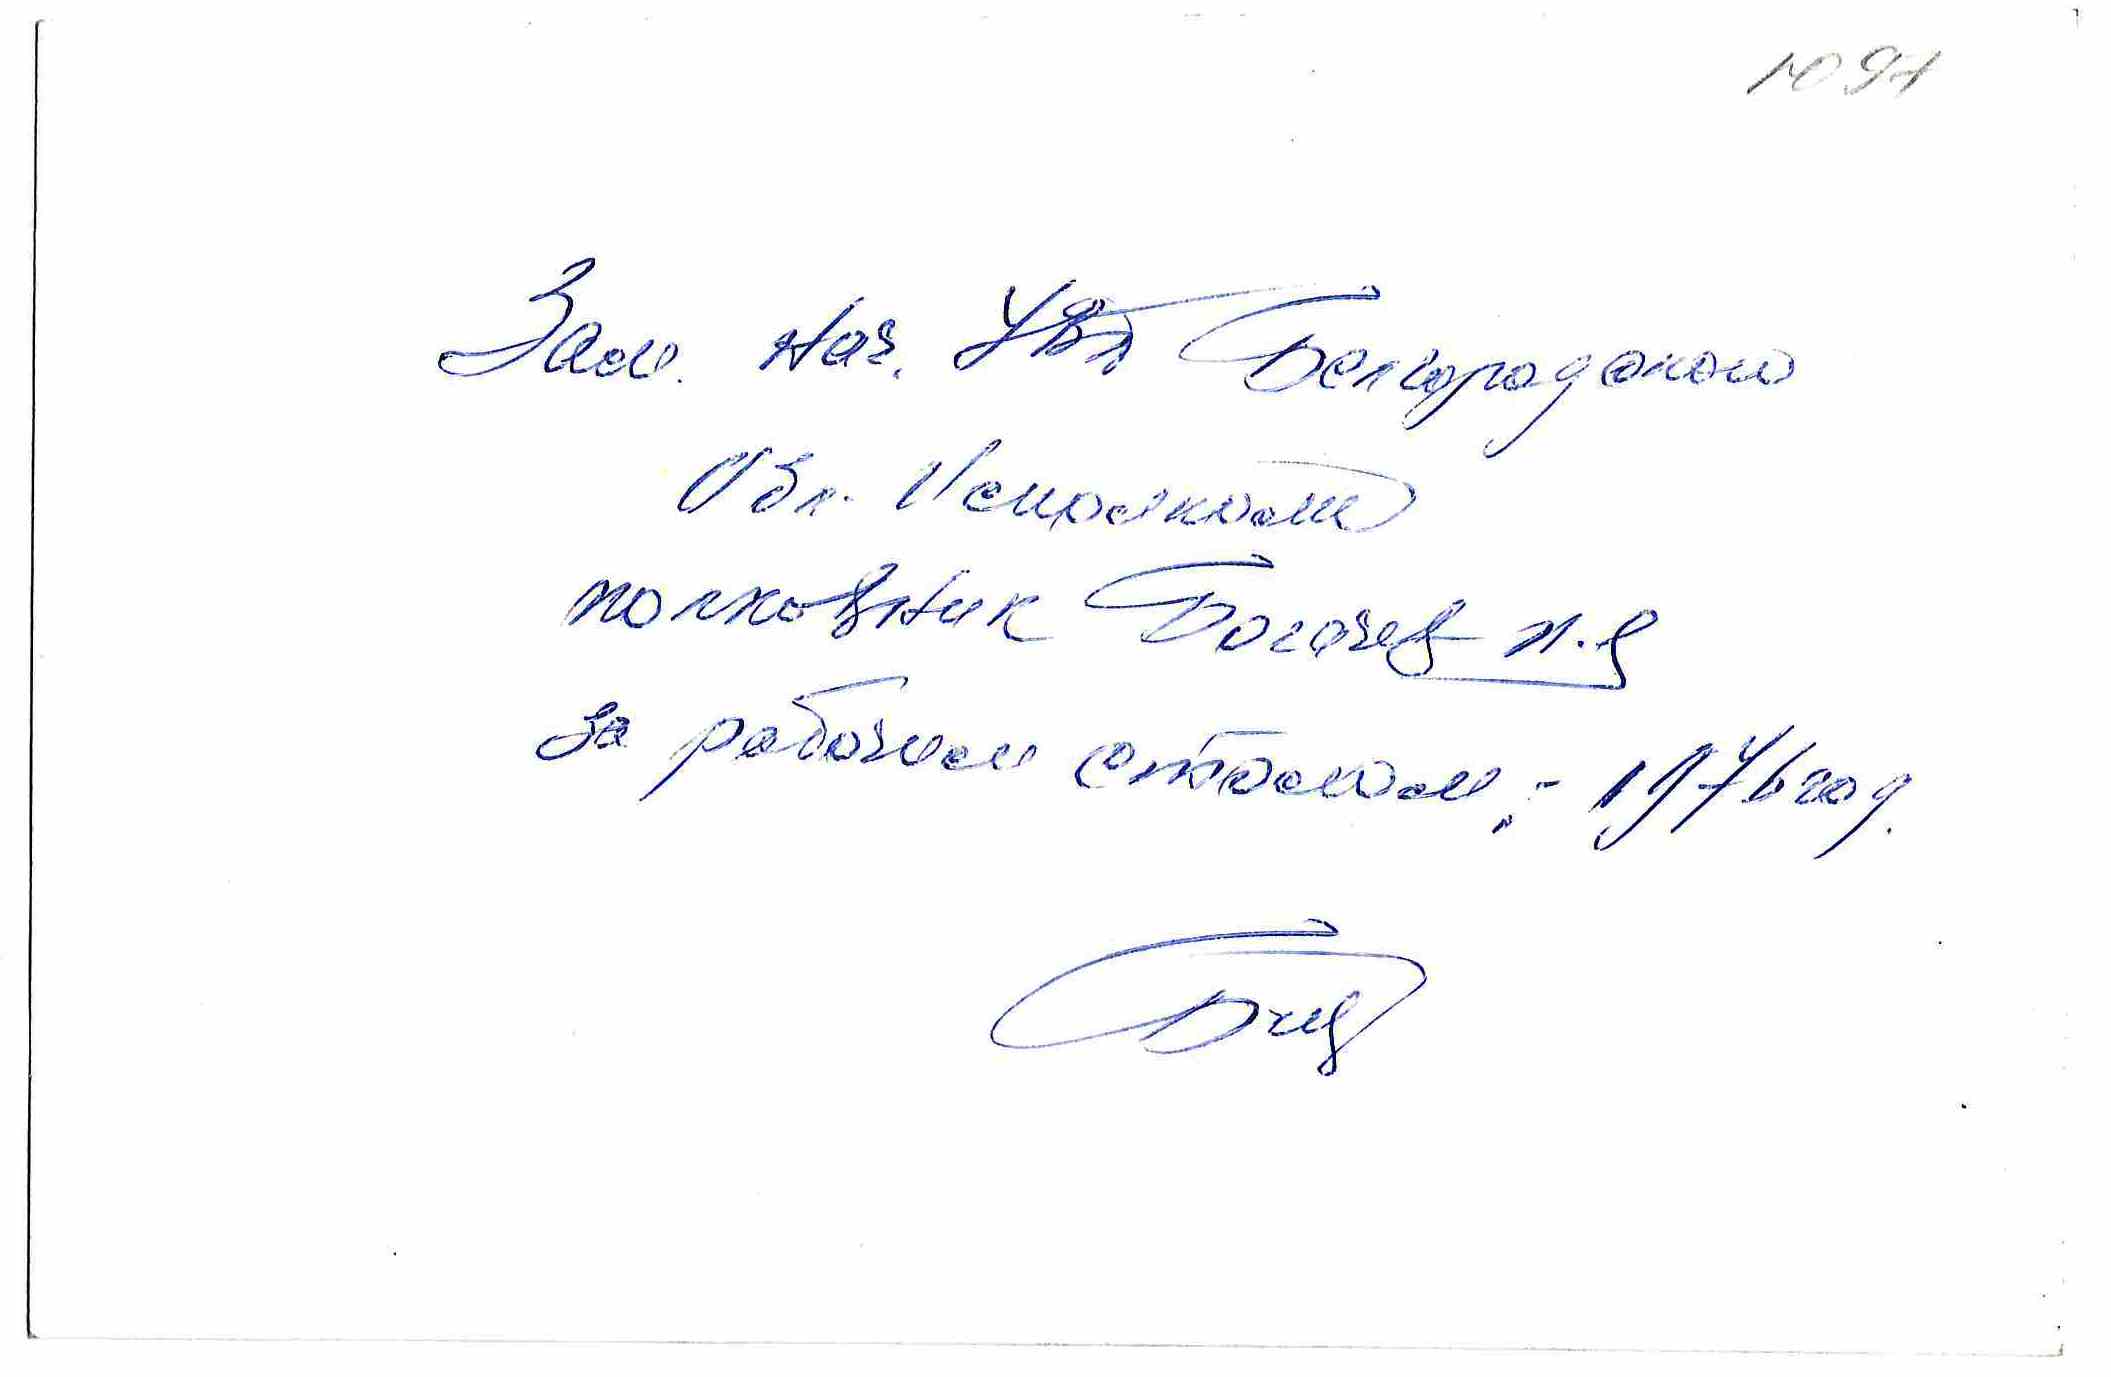 1097
Зам. нач. УВД Белгородского
Обл. Исполком
полковник Богачев П.Д
за рабочим столом, - 1976 год.